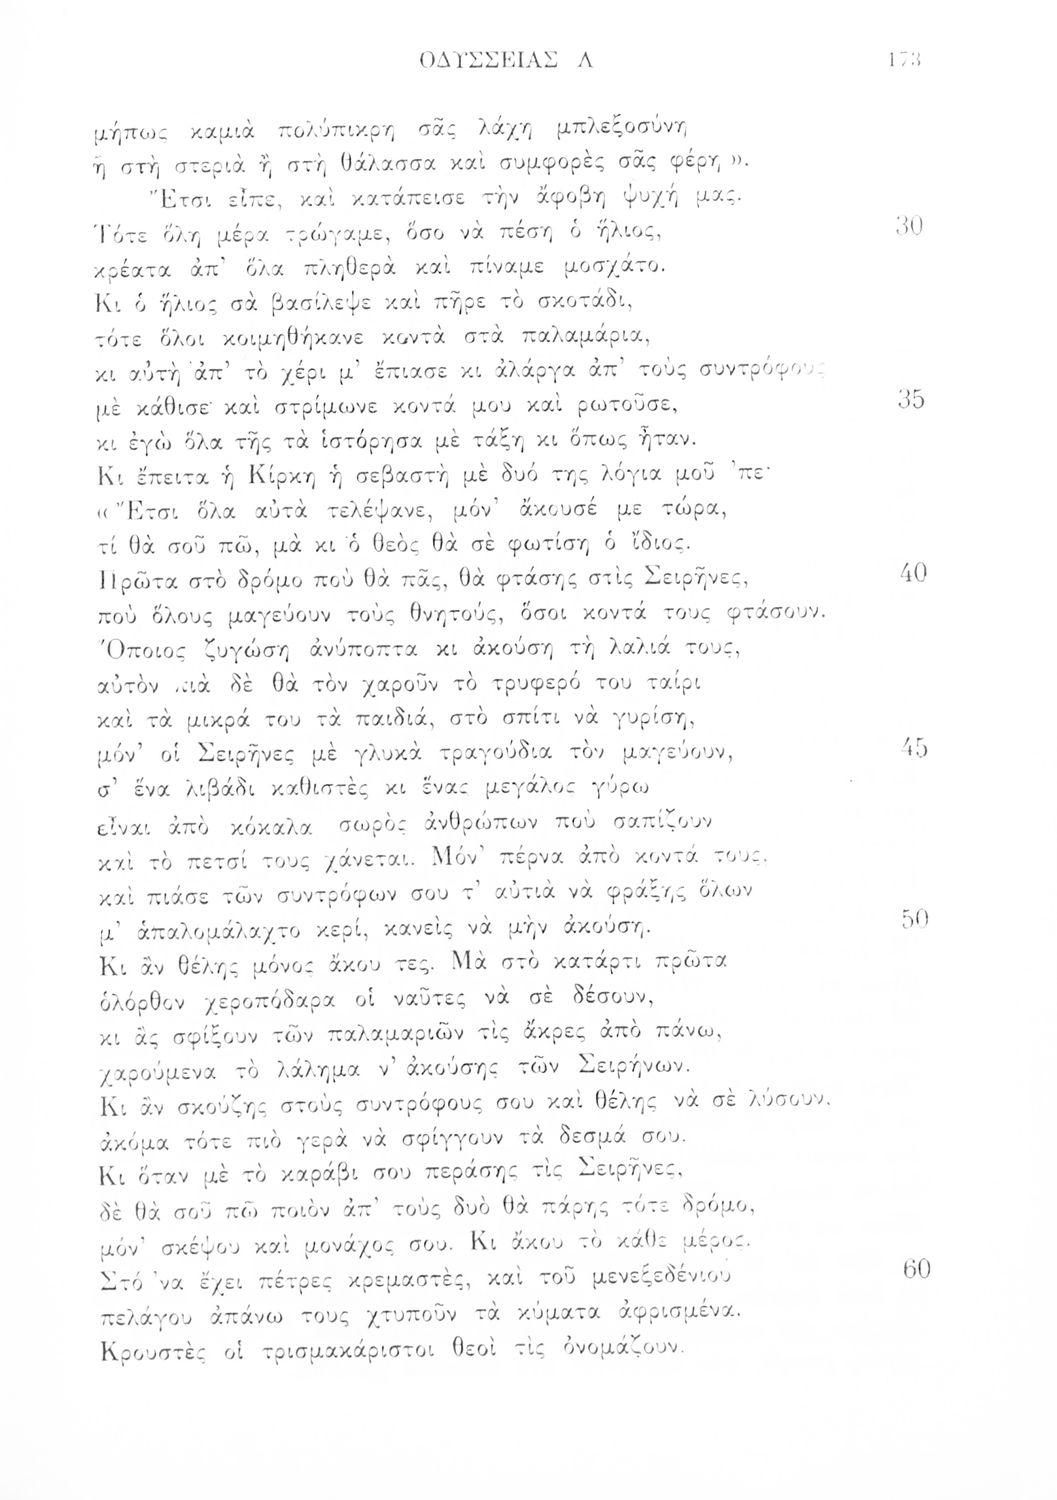 ΟΔΥΣΣΕΙΑΣ Λ 173
μήπως καμιὰ πολύπικρη σᾶς λάχη μπλεξοσύνη
ἢ στὴ στεριὰ ἢ στὴ θάλασσα καὶ συμφορὲς σᾶς φέρη ».
Ἔτσι εἶπε, καὶ κατάπεισε τὴν ἄφοβη ψυχή μας.
Τότε ὅλη μέρα τρώγαμε, ὅσο νὰ πέση ὁ ἥλιος, 30
κρέατα ἀπ’ ὅλα πληθερὰ καὶ πίναμε μοσχάτο.
Κι ὁ ἥλιος σὰ βασίλεψε καὶ πῆρε τὸ σκοτάδι,
τότε ὅλοι κοιμηθήκανε κοντὰ στὰ παλαμάρια,
κι αὐτὴ ἀπ’ τὸ χέρι μ’ ἔπιασε κι ἀλάργα ἀπ’ τοὺς συντρόφους
μὲ κάθισε· καὶ στρίμωνε κοντά μου καὶ ρωτοῦσε, 35
κι ἐγὼ ὅλα τῆς τὰ ἱστόρησα μὲ τάξη κι ὅπως ἦταν.
Κι ἔπειτα ἡ Κίρκη ἡ σεβαστὴ μὲ δυό της λόγια μοῦ ’πε·
« Ἔτσι ὅλα αὐτὰ τελέψανε, μόν’ ἄκουσέ με τώρα,
τί θὰ σοῦ πῶ, μὰ κι ὁ θεὸς θὰ σὲ φωτίση ὁ ἴδιος.
Πρῶτα στὸ δρόμο ποὺ θὰ πᾶς, θὰ φτάσης στὶς Σειρῆνες, 40
ποὺ ὅλους μαγεύουν τοὺς θνητούς, ὅσοι κοντά τους φτάσουν.
Ὅποιος ζυγώση ἀνύποπτα κι ἀκούση τὴ λαλιά τους,
αὐτὸν πιὰ δὲ θὰ τὸν χαροῦν τὸ τρυφερό του ταίρι
καὶ τὰ μικρά του τὰ παιδιά, στὸ σπίτι νὰ γυρίση,
μόν’ οἱ Σειρῆνες μὲ γλυκὰ τραγούδια τὸν μαγεύουν, 45
σ’ ἕνα λιβάδι καθιστὲς κι ἕνας μεγάλος γύρω
εἶναι ἀπὸ κόκαλα σωρὸς ἀνθρώπων ποὺ σαπίζουν
καὶ τὸ πετσί τους χάνεται. Μόν’ πέρνα ἀπὸ κοντά τους,
καὶ πιάσε τῶν συντρόφων σου τ’ αὐτιὰ νὰ φράξης ὅλων
μ’ ἁπαλομάλαχτο κερί, κανεὶς νὰ μὴν ἀκούση. 50
Κι ἂν θέλης μόνος ἄκου τες. Μὰ στὸ κατάρτι πρῶτα
ὁλόρθον χεροπόδαρα οἱ ναῦτες νὰ σὲ δέσουν,
κι ἂς σφίξουν τῶν παλαμαριῶν τὶς ἄκρες ἀπὸ πάνω,
χαρούμενα τὸ λάλημα ν’ ἀκούσης τῶν Σειρήνων.
Κι ἂν σκούζης στοὺς συντρόφους σου καὶ θέλης νὰ σὲ λύσουν,
ἀκόμα τότε πιὸ γερὰ νὰ σφίγγουν τὰ δεσμά σου.
Κι ὅταν μὲ τὸ καράβι σου περάσης τὶς Σειρῆνες,
δὲ θὰ σοῦ πῶ ποιὸν ἀπ’ τοὺς δυὸ θὰ πάρης τότε δρόμο,
μόν’ σκέψου καὶ μονάχος σου. Κι ἄκου τὸ κάθε μέρος.
Στό ’να ἔχει πέτρες κρεμαστὲς, καὶ τοῦ μενεξεδένιου 60
πελάγου ἀπάνω τους χτυποῦν τὰ κύματα ἀφρισμένα.
Κρουστὲς οἱ τρισμακάριστοι θεοὶ τὶς ὀνομάζουν.